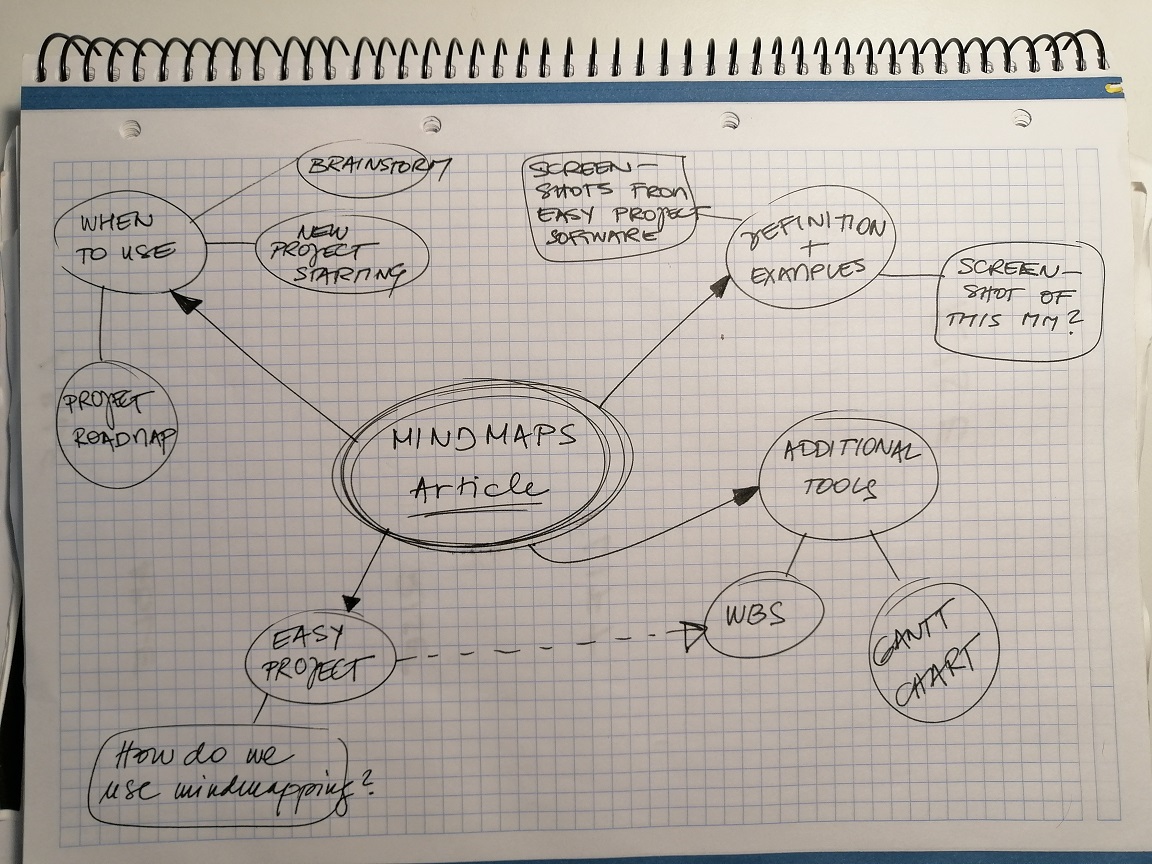 BRAINSTORM
WHEN
TO USE
NEW
PROJECT
STARTING
PROJECT
ROADMAP
SCREEN-
SHOTS FROM
EASY PROJECT
SOFTWARE
DEFINITION
+
EXAMPLES
SCREEN-
SHOT OF
THIS MM?
MINDMAPS
Article
ADDITIONAL
TOOLS
WBS
GANTT
CHART
EASY
PROJECT
How do we
use mindmapping?